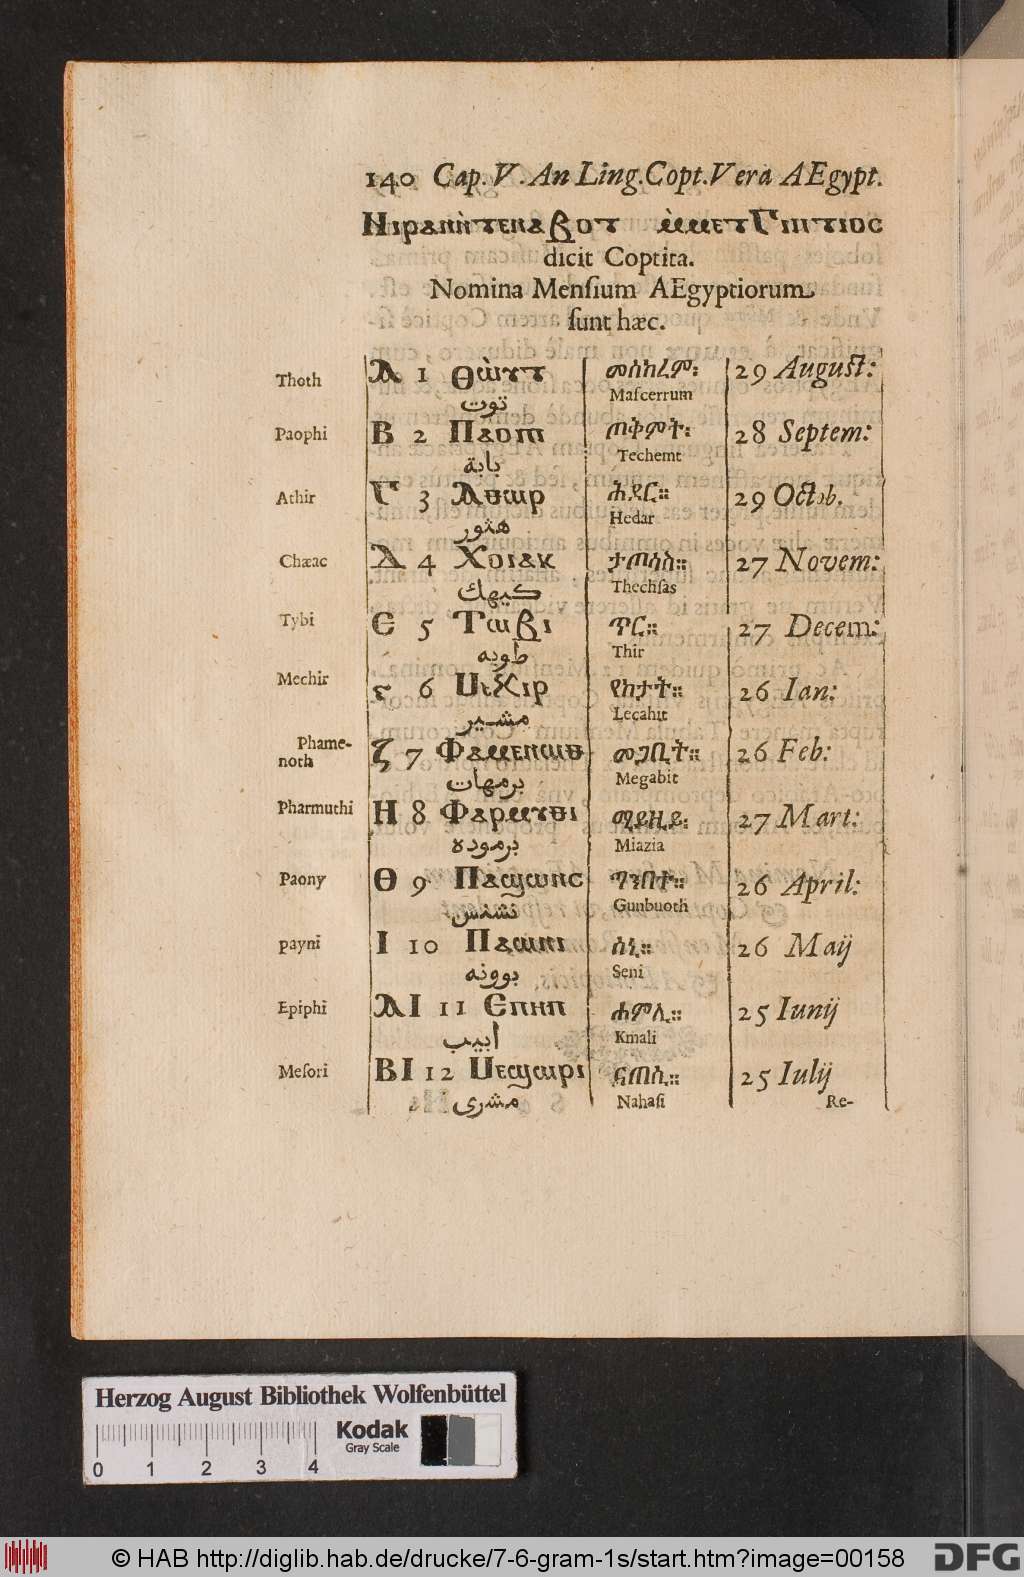 140 Cap. V. An Ling. Copt. Vera AEgypt.
Ⲛⲓⲣⲁⲛⲛ̀ⲧⲉⲛⲁⲃⲟⲧ ⲙ̀ⲙⲉⲧⲅⲓⲡⲧⲓⲟⲥ
dicit Coptita.
Nomina Mensium AEgyptiorum
sunt hæc.
Thoth Ⲁ 1 Ⲑⲱ̀ⲩⲧ መስከረም፡ 29 August:
توت Mascerrum
Paophi Ⲃ 2 Ⲡⲁⲟⲡⲓ ጠቅምት፡ 28 Septem:
بابة Techemt
Athir Ⲅ 3 Ⲁⲑⲱⲣ ሕደር። 29 Octob.
هثور Hedar
Chæac Ⲇ 4 Ⲭⲟⲓⲁⲕ ታጠሳስ። 27 Novem:
كيهك Thechsas
Tybi Ⲉ 5 Ⲧⲱⲃⲓ ጥር። 27 Decem:
طوبه Thir
Mechir ⲋ 6 Ⲙⲉⲭⲓⲣ የከታት። 26 Ian:
مشير Lecahit
Phame-
noth Ⲍ 7 Ⲫⲁⲙⲉⲛⲱⲑ መጋቢት። 26 Feb:
برمهات Megabit
Pharmuthi Ⲏ 8 Ⲫⲁⲣⲙⲟⲩⲑⲓ ሚይዚይ፡ 27 Mart:
برموده Miazia
Paony Ⲑ 9 Ⲡⲁϣⲱⲛⲥ ግንቦት። 26 April:
بشنس Gunbuoth
payni Ⲓ 10 Ⲡⲁⲱⲛⲓ ሰኒ። 26 Maij
بوونه Seni
Epiphi ⲀⲒ 11 Ⲉⲡⲏⲡ ሐምሊ። 25 Iunij
ابيب Kmali
Mesori ⲂⲒ 12 Ⲙⲉϣⲱⲣⲓ ናጠሲ። 25 Iulij
مشرى Nahasi
Re-
Herzog August Bibliothek Wolfenbüttel
Kodak
Gray Scale
0 1 2 3 4
© HAB http://diglib.hab.de/drucke/7-6-gram-1s/start.htm?image=00158
DFG